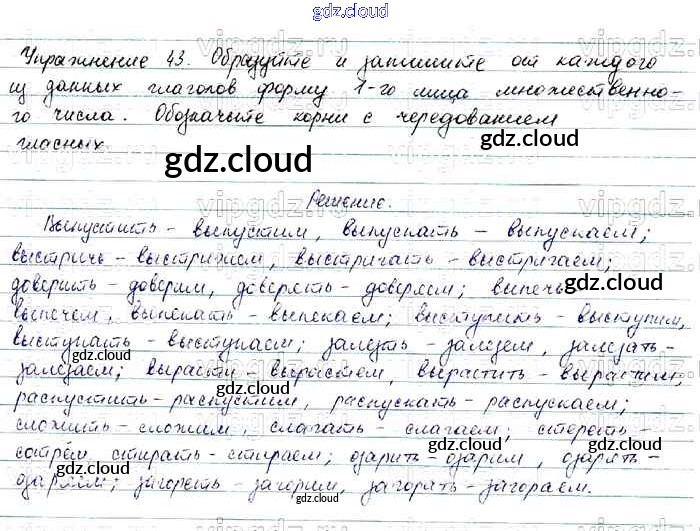 gdz.cloud
Упражнение 43. Образуйте и запишите от каждого
из данных глаголов форму 1-го лица множественно-
го числа. Обозначьте корни с чередованием
гласных.
gdz.cloud
Решение.
Выпустить - выпустим, выпускать - выпускаем;
выстричь - выстрижем, выстригать - выстригаем;
gdz.cloud
доверить - доверим, доверять - доверяем; выпечь
gdz.cloud
выпечем, выпекать - выпекаем; выступить - выступим,
выступать - выступаем; залезть - залезем, залезать -
gdz.cloud
залезаем; вырасти - вырастем, вырастить - вырастим;
gdz.cloud
распустить - распустим, распускать - распускаем;
сложить - сложим, слагать - слагаем; стереть -
gdz.cloud
сотрём, стирать - стираем; озарить - озарим, озарять -
gdz.cloud
озаряем; загореть - загорим, загорать - загораем.
gdz.cloud